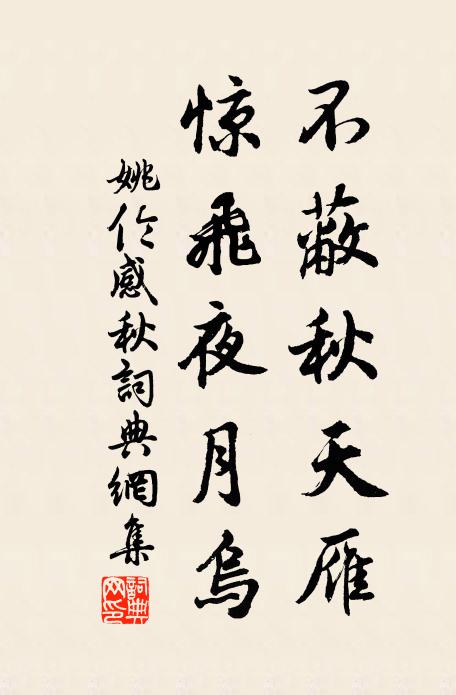 不蔽秋天雁
惊飛夜月烏
姚伦感秋詞典網集
詞典网印